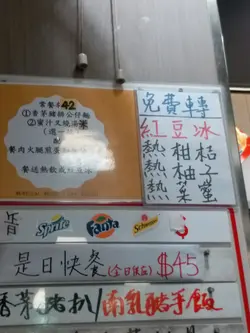 常餐 42
①香茅豬排公仔麵
②蜜汁叉燒湯米
(選一)
配
餐肉火腿煎蛋
餐送熱飲或
免費轉
紅豆冰
熱柑桔
熱柚子
熱菜蜜
Sprite
Fanta
Schweppes
是日快餐(今日供應) $45
香茅豬扒/南乳豬手飯